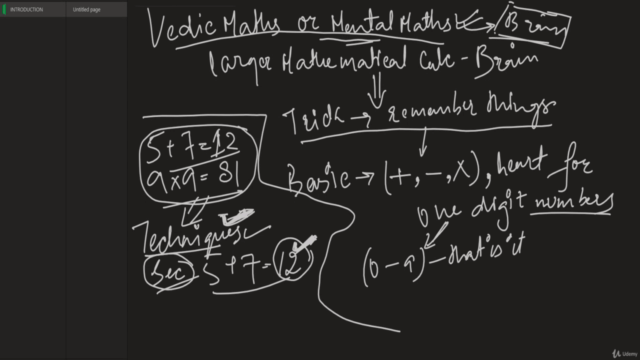 INTRODUCTION
Untitled page
Vedic Maths or Mental Maths
Brain
Larger Mathematical Calc - Brain
Trick → remember things
Basic → (+, -, x), heart for
one digit numbers
(0 - 9) - that is it
5 + 7 = 12
9 x 9 = 81
Techniques
Sec
5 + 7 = 12
Udemy